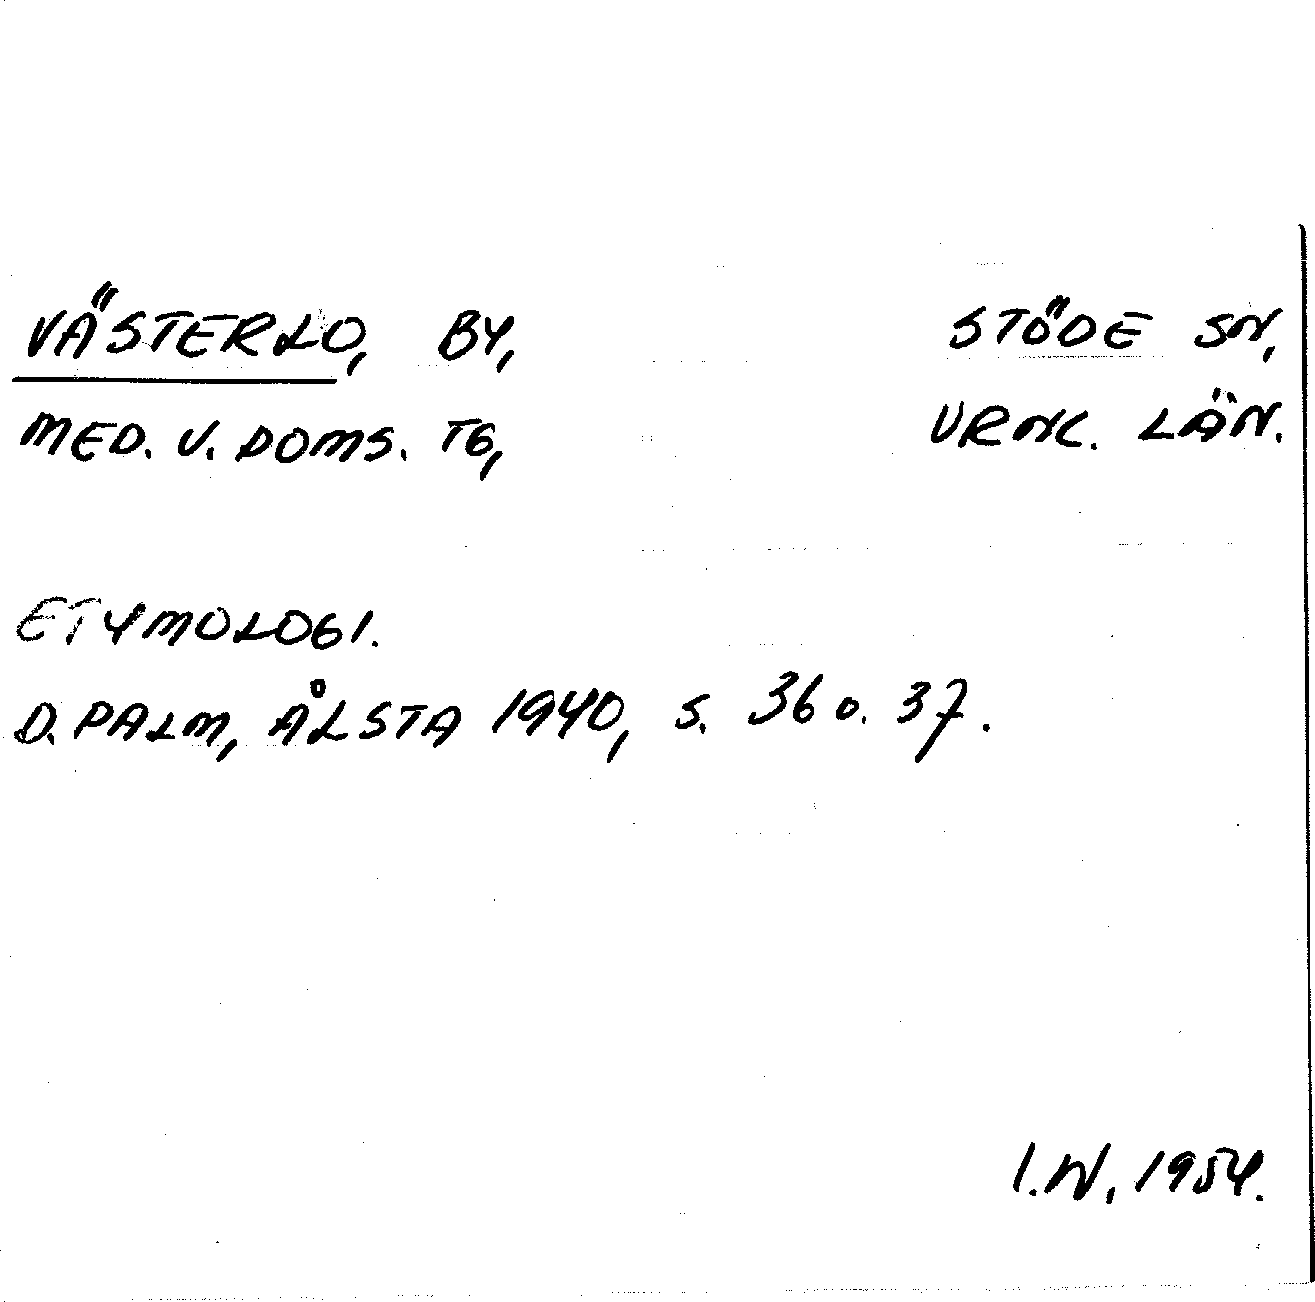 VÄSTERLO, BY, STÖDE SN,
MED. V. DOMS. TG, VRNL. LÄN.
ETYMOLOGI.
D. PALM, ÅLSTA 1940, S. 36 o. 37.
I.W. 1954.